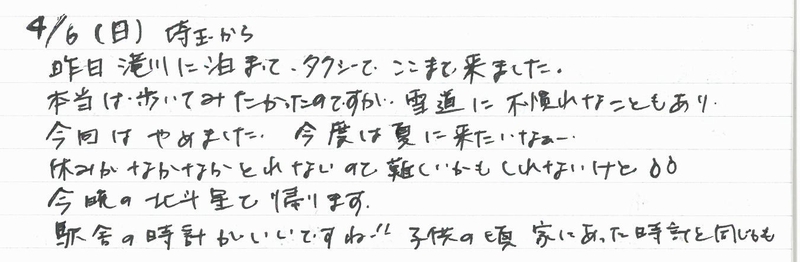 4/6(日) 埼玉から
昨日 滝川に泊まって、タクシーで ここまで来ました。
本当は、歩いてみたかったのですが、雪道に不慣れなこともあり、
今回は やめました。 今度は夏に来たいなぁー。
休みがなかなかとれないので難しいかもしれないけど
今晩の北斗星で帰ります。
駅舎の時計がいいですね!! 子供の頃 家にあった時計と同じも